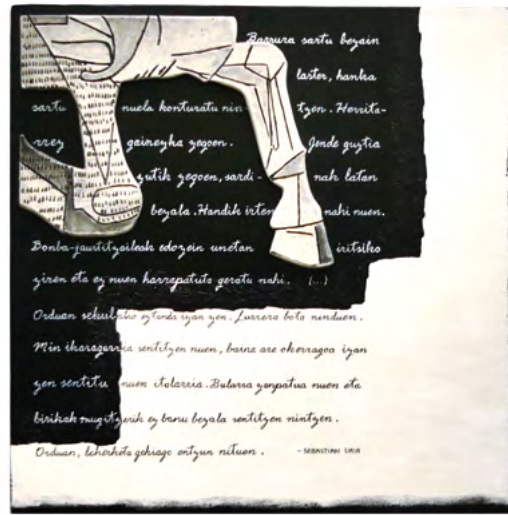 Barrura sartu bezain
laster, hanka
sartu nuela konturatu nin- tzen. Herrita-
rrez gainezka zegoen. Jende guztia
zutik zegoen, sardi- nak latan
bezala. Handik irten nahi nuen.
Bonba-jaurtitzaileak edozein unetan iritsiko
ziren eta ez nuen harrapatuta geratu nahi. (...)
Orduan sekulako eztanda izan zen. Lurrera bota ninduen.
Min ikaragarria sentitzen nuen, baina are okerragoa izan
zen sentitu nuen itolarria. Bularra zanpatua nuen eta
birikak mugitzerik ez banu bezala sentitzen nintzen.
Orduan, leherketa gehiago entzun nituen. - SEBASTIAN